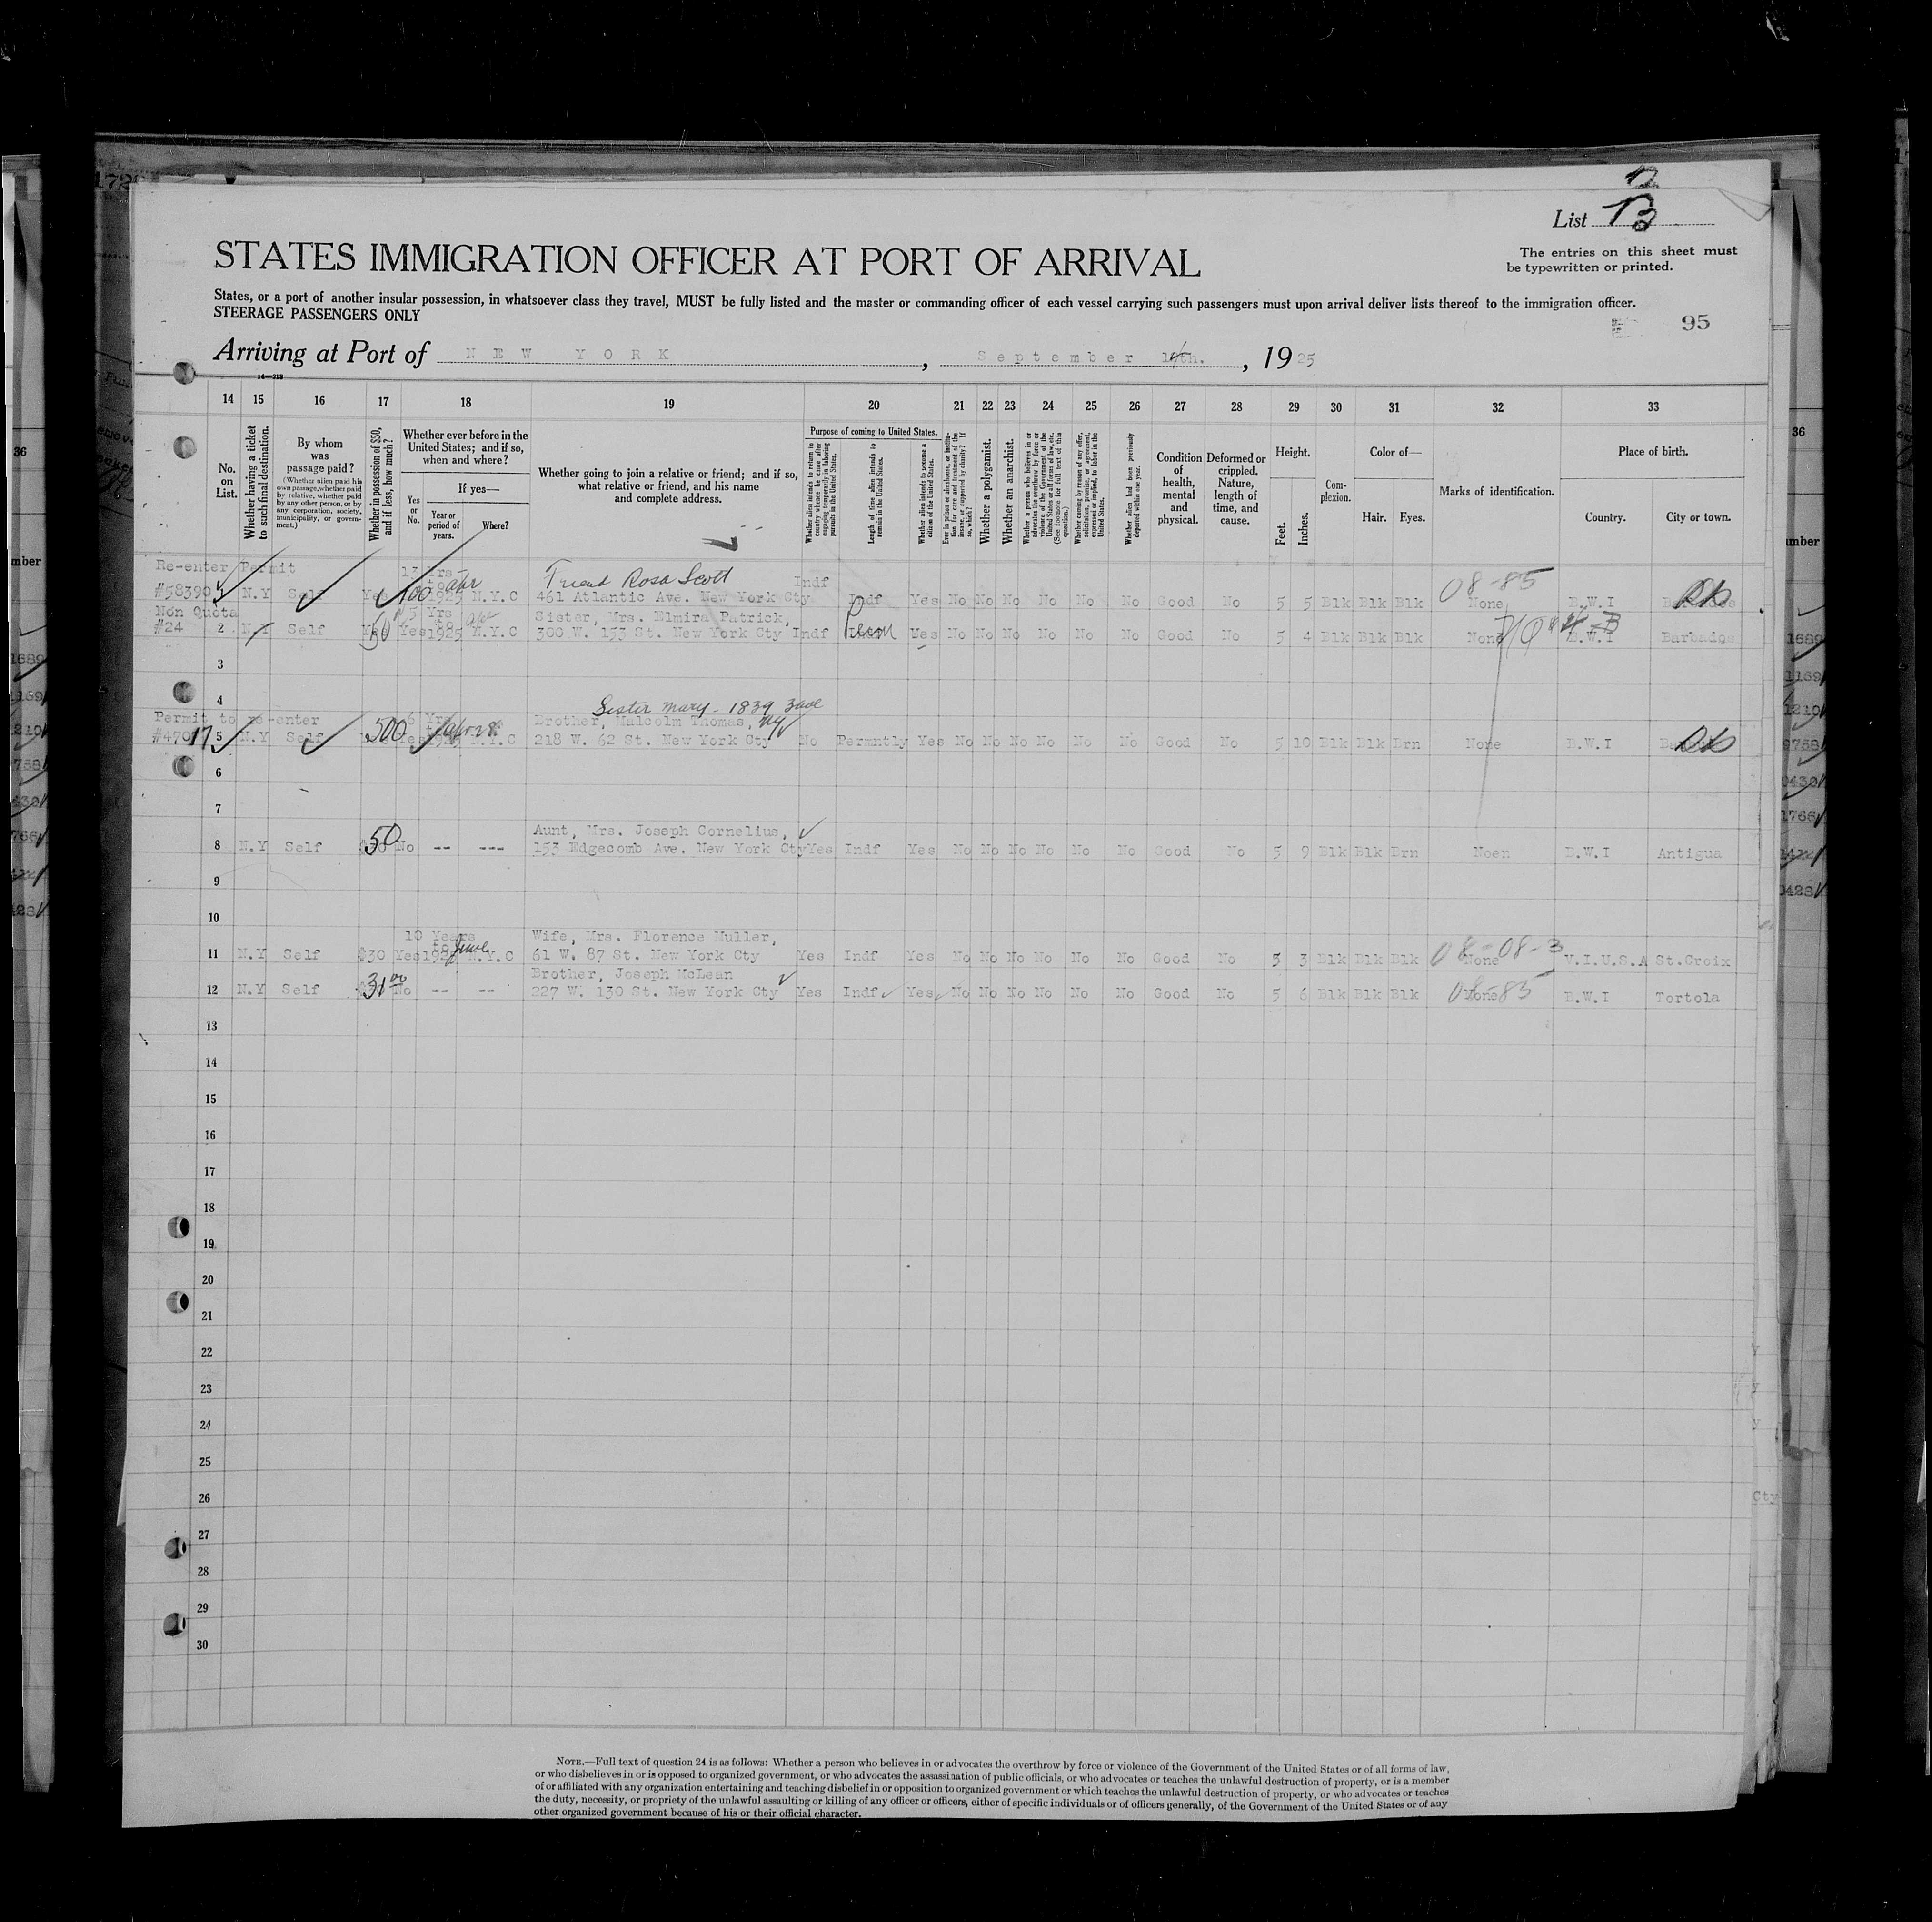 172
List 13
STATES IMMIGRATION OFFICER AT PORT OF ARRIVAL
The entries on this sheet must
be typewritten or printed.
States, or a port of another insular possession, in whatsoever class they travel, MUST be fully listed and the master or commanding officer of each vessel carrying such passengers must upon arrival deliver lists thereof to the immigration officer.
STEERAGE PASSENGERS ONLY
95
Arriving at Port of NEW YORK, September, 1925
14 15 16 17 18 19 20 21 22 23 24 25 26 27 28 29 30 31 32 33
No. on List.
Whether having a ticket to such final destination.
By whom was passage paid?
(Whether alien paid his own passage, whether paid by relative, whether paid by any other person, or by any corporation, society, municipality, or government.)
Whether in possession of $50, and if less, how much?
Whether ever before in the United States; and if so, when and where?
Yes or No.
If yes—
Year or period of years.
Where?
Whether going to join a relative or friend; and if so, what relative or friend, and his name and complete address.
Purpose of coming to United States.
Whether alien intends to return to country whence he came after engaging temporarily in laboring pursuits in the United States.
Length of time alien intends to remain in the United States.
Whether alien intends to become a citizen of the United States.
Ever in prison or almshouse, or institution for care and treatment of the insane, or supported by charity? If so, which?
Whether a polygamist.
Whether an anarchist.
Whether a person who believes in or advocates the overthrow by force or violence of the Government of the United States or all forms of law, etc. (See footnote for full text of this question.)
Whether coming by reason of any offer, solicitation, promise, or agreement, expressed or implied, to labor in the United States.
Whether alien had been previously deported within one year.
Condition of health, mental and physical.
Deformed or crippled. Nature, length of time, and cause.
Height.
Feet. Inches.
Complexion.
Color of—
Hair. Eyes.
Marks of identification.
Place of birth.
Country. City or town.
Re-enter Permit 13 Yrs Friend Rosa Scott Indf 08-85
#58390 1 N.Y Self Yes 100 1925 N.Y.C 461 Atlantic Ave. New York Cty Indf Yes No No No No No No Good No 5 5 Blk Blk Blk None B.W.I
Non Quota 5 Yrs Sister, Mrs. Elmira Patrick,
#24 2 N.Y Self 50 Yes 1925 N.Y.C 300 W. 153 St. New York Cty Indf Yes No No No No No No Good No 5 4 Blk Blk Blk None B.W.I Barbados
3
4 Sister Mary - 1839 3 ave
Permit to re-enter 6 Yrs Brother, Malcolm Thomas, NY
5 N.Y Self 500 Yes N.Y.C 218 W. 62 St. New York Cty No Permntly Yes No No No No No No Good No 5 10 Blk Blk Brn None B.W.I
6
7
Aunt, Mrs. Joseph Cornelius,
8 N.Y Self 50 No -- --- 153 Edgecomb Ave. New York Cty Yes Indf Yes No No No No No No Good No 5 9 Blk Blk Brn Noen B.W.I Antigua
9
10
10 Years Wife, Mrs. Florence Muller,
11 N.Y Self $30 Yes June N.Y.C 61 W. 87 St. New York Cty Yes Indf Yes No No No No No No Good No 5 3 Blk Blk Blk None 08-08-3 V.I.U.S.A St.Croix
Brother, Joseph McLean
12 N.Y Self 31 00 No -- -- 227 W. 130 St. New York Cty Yes Indf Yes No No No No No No Good No 5 6 Blk Blk Blk None 08-85 B.W.I Tortola
13
14
15
16
17
18
19
20
21
22
23
24
25
26
27
28
29
30
NOTE.—Full text of question 24 is as follows: Whether a person who believes in or advocates the overthrow by force or violence of the Government of the United States or of all forms of law,
or who disbelieves in or is opposed to organized government, or who advocates the assassination of public officials, or who advocates or teaches the unlawful destruction of property, or is a member
of or affiliated with any organization entertaining and teaching disbelief in or opposition to organized government or which teaches the unlawful destruction of property, or who advocates or teaches
the duty, necessity, or propriety of the unlawful assaulting or killing of any officer or officers, either of specific individuals or of officers generally, of the Government of the United States or of any
other organized government because of his or their official character.